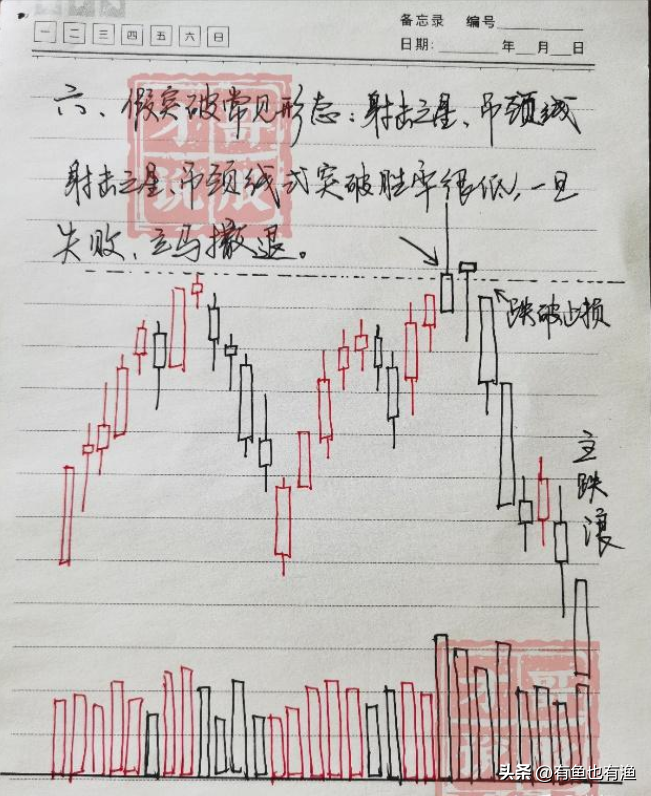 备忘录 编号
一 二 三 四 五 六 日
日期: 年 月 日
六、假突破常见形态：射击之星、吊颈线
射击之星、吊颈线式突破胜率很低，一旦
失败，立马撤退。
跌破止损
主跌浪
头条 @有鱼也有渔